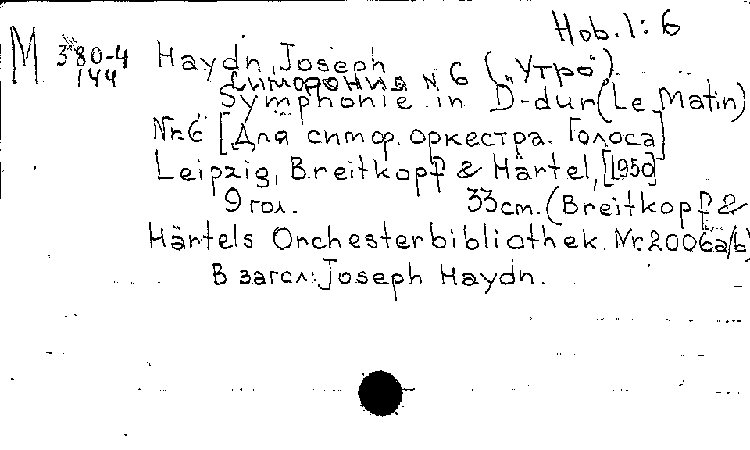 Hob.1:6
M 380-4 Haydn, Joseph
144 Симфония N 6 („Утро“).
Symphonie in D-dur (Le Matin)
Nr.6 [Для симф. оркестра. Голоса]
Leipzig, Breitkopf & Härtel, [1950]
9 гол. 33 cm. (Breitkopf &
Härtels Orchesterbibliothek. Nr. 2006a/b)
В загл.: Joseph Haydn.